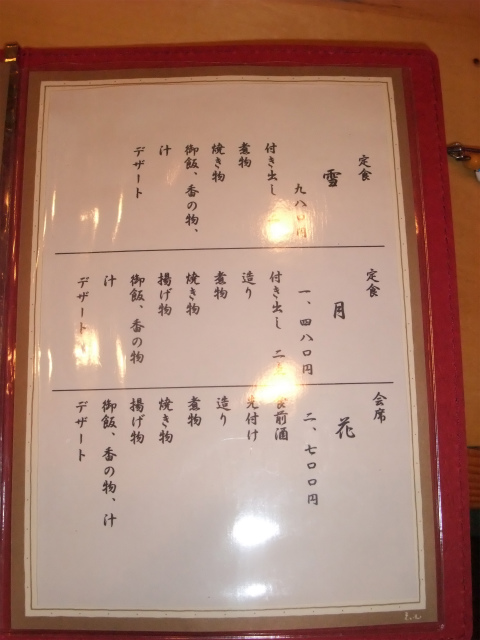 定食
雪
九八〇円
付き出し
煮物
焼き物
御飯、香の物、
汁
デザート
定食
月
一、四八〇円
付き出し 二
造り
煮物
焼き物
揚げ物
御飯、香の物
汁
デザート
会席
花
二、七〇〇円
食前酒
先付け
造り
煮物
焼き物
揚げ物
御飯、香の物、汁
デザート